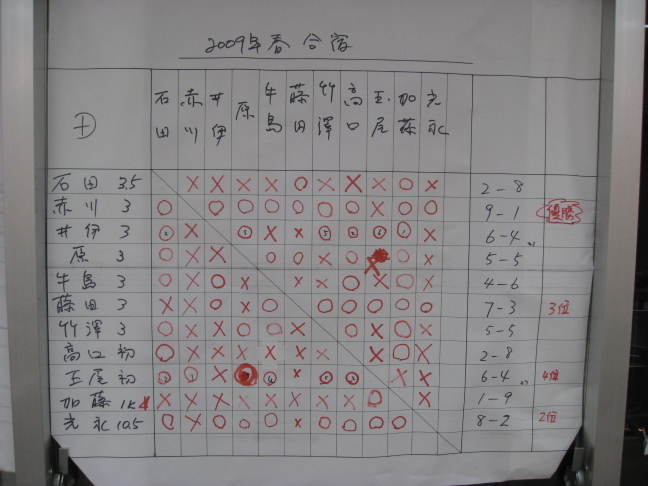 2009年春 合宿
石田 赤川 井伊 原 牛島 藤田 竹澤 高口 玉尾 加藤 光永
石田 3.5 × × × × ○ × × × ○ × 2-8
赤川 3 ○ ○ ○ ○ ○ ○ ○ × ○ ○ 9-1 優勝
井伊 3 ○ × ○ × × ○ ○ ○ ○ × 6-4
原 3 ○ × × ○ ○ × ○ × ○ × 5-5
牛島 3 ○ × ○ × × × ○ × ○ × 4-6
藤田 3 × × ○ × ○ ○ ○ ○ ○ ○ 7-3 3位
竹澤 3 ○ × × ○ ○ × ○ × ○ × 5-5
高口 初 ○ × × × × × × × ○ × 2-8
玉尾 初 ○ ○ × ○ × ○ ○ × × 6-4 4位
加藤 1K × × × × × × × × ○ × 1-9
光永 10.5 ○ × ○ ○ ○ × ○ ○ ○ ○ 8-2 2位